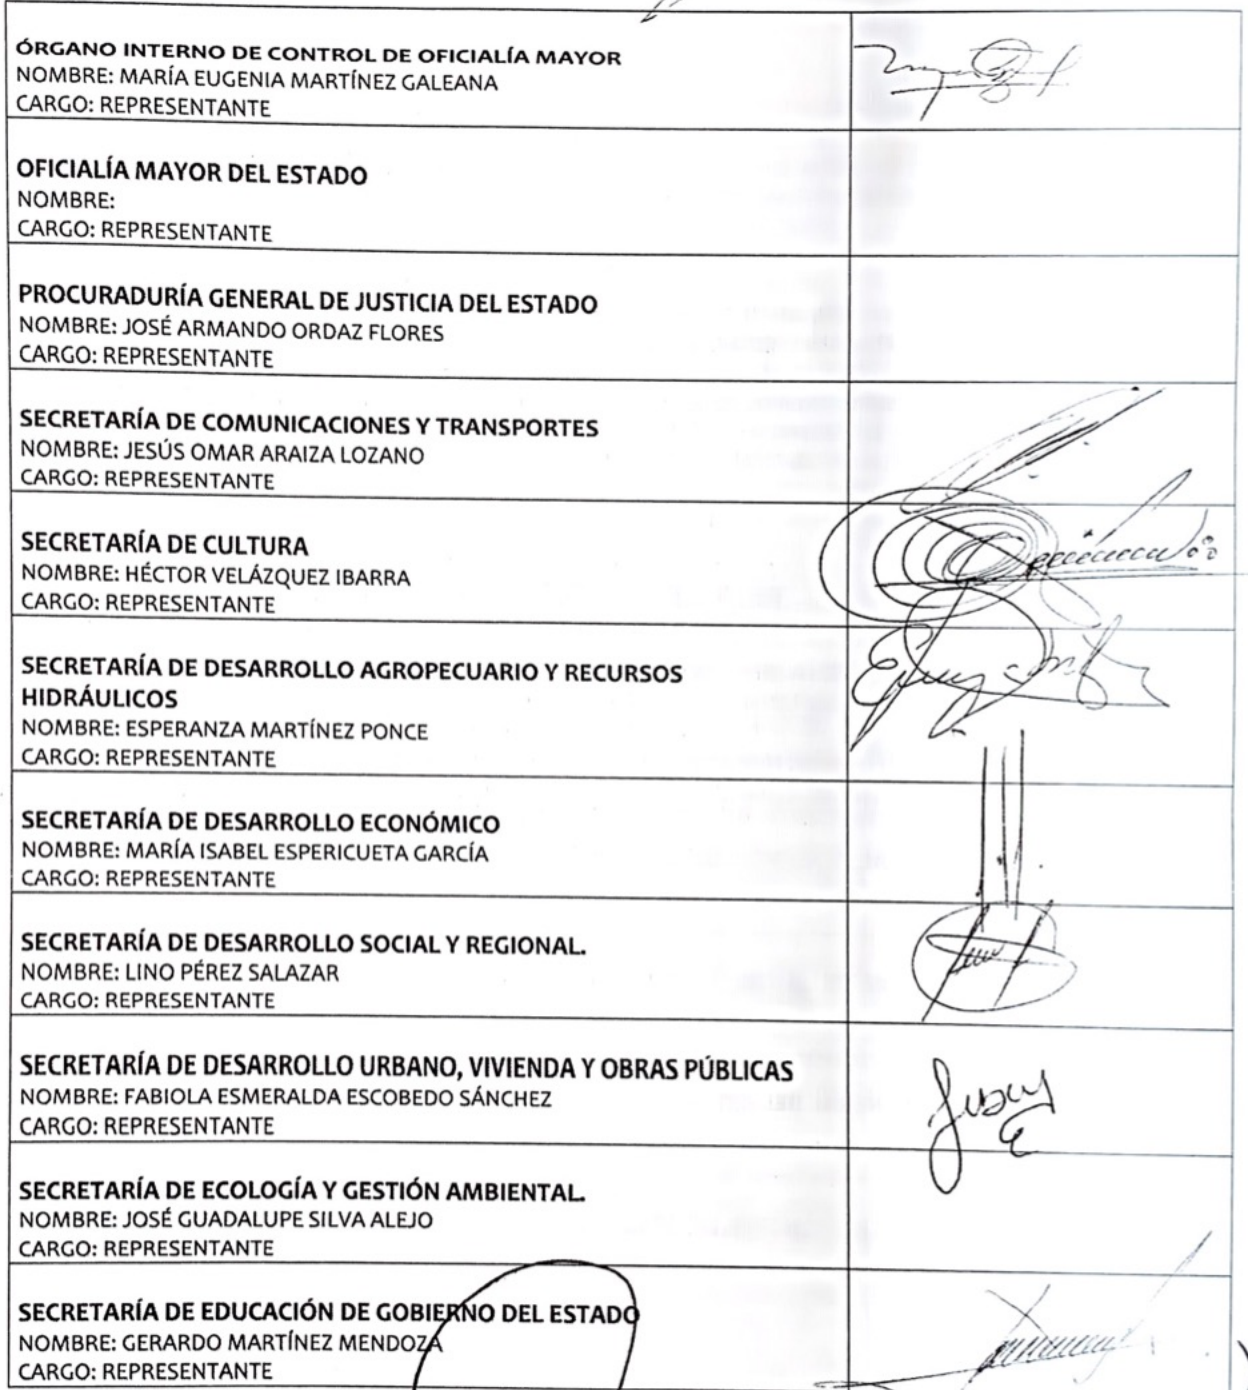 ÓRGANO INTERNO DE CONTROL DE OFICIALÍA MAYOR
NOMBRE: MARÍA EUGENIA MARTÍNEZ GALEANA
CARGO: REPRESENTANTE
OFICIALÍA MAYOR DEL ESTADO
NOMBRE:
CARGO: REPRESENTANTE
PROCURADURÍA GENERAL DE JUSTICIA DEL ESTADO
NOMBRE: JOSÉ ARMANDO ORDAZ FLORES
CARGO: REPRESENTANTE
SECRETARÍA DE COMUNICACIONES Y TRANSPORTES
NOMBRE: JESÚS OMAR ARAIZA LOZANO
CARGO: REPRESENTANTE
SECRETARÍA DE CULTURA
NOMBRE: HÉCTOR VELÁZQUEZ IBARRA
CARGO: REPRESENTANTE
SECRETARÍA DE DESARROLLO AGROPECUARIO Y RECURSOS
HIDRÁULICOS
NOMBRE: ESPERANZA MARTÍNEZ PONCE
CARGO: REPRESENTANTE
SECRETARÍA DE DESARROLLO ECONÓMICO
NOMBRE: MARÍA ISABEL ESPERICUETA GARCÍA
CARGO: REPRESENTANTE
SECRETARÍA DE DESARROLLO SOCIAL Y REGIONAL.
NOMBRE: LINO PÉREZ SALAZAR
CARGO: REPRESENTANTE
SECRETARÍA DE DESARROLLO URBANO, VIVIENDA Y OBRAS PÚBLICAS
NOMBRE: FABIOLA ESMERALDA ESCOBEDO SÁNCHEZ
CARGO: REPRESENTANTE
SECRETARÍA DE ECOLOGÍA Y GESTIÓN AMBIENTAL.
NOMBRE: JOSÉ GUADALUPE SILVA ALEJO
CARGO: REPRESENTANTE
SECRETARÍA DE EDUCACIÓN DE GOBIERNO DEL ESTADO
NOMBRE: GERARDO MARTÍNEZ MENDOZA
CARGO: REPRESENTANTE